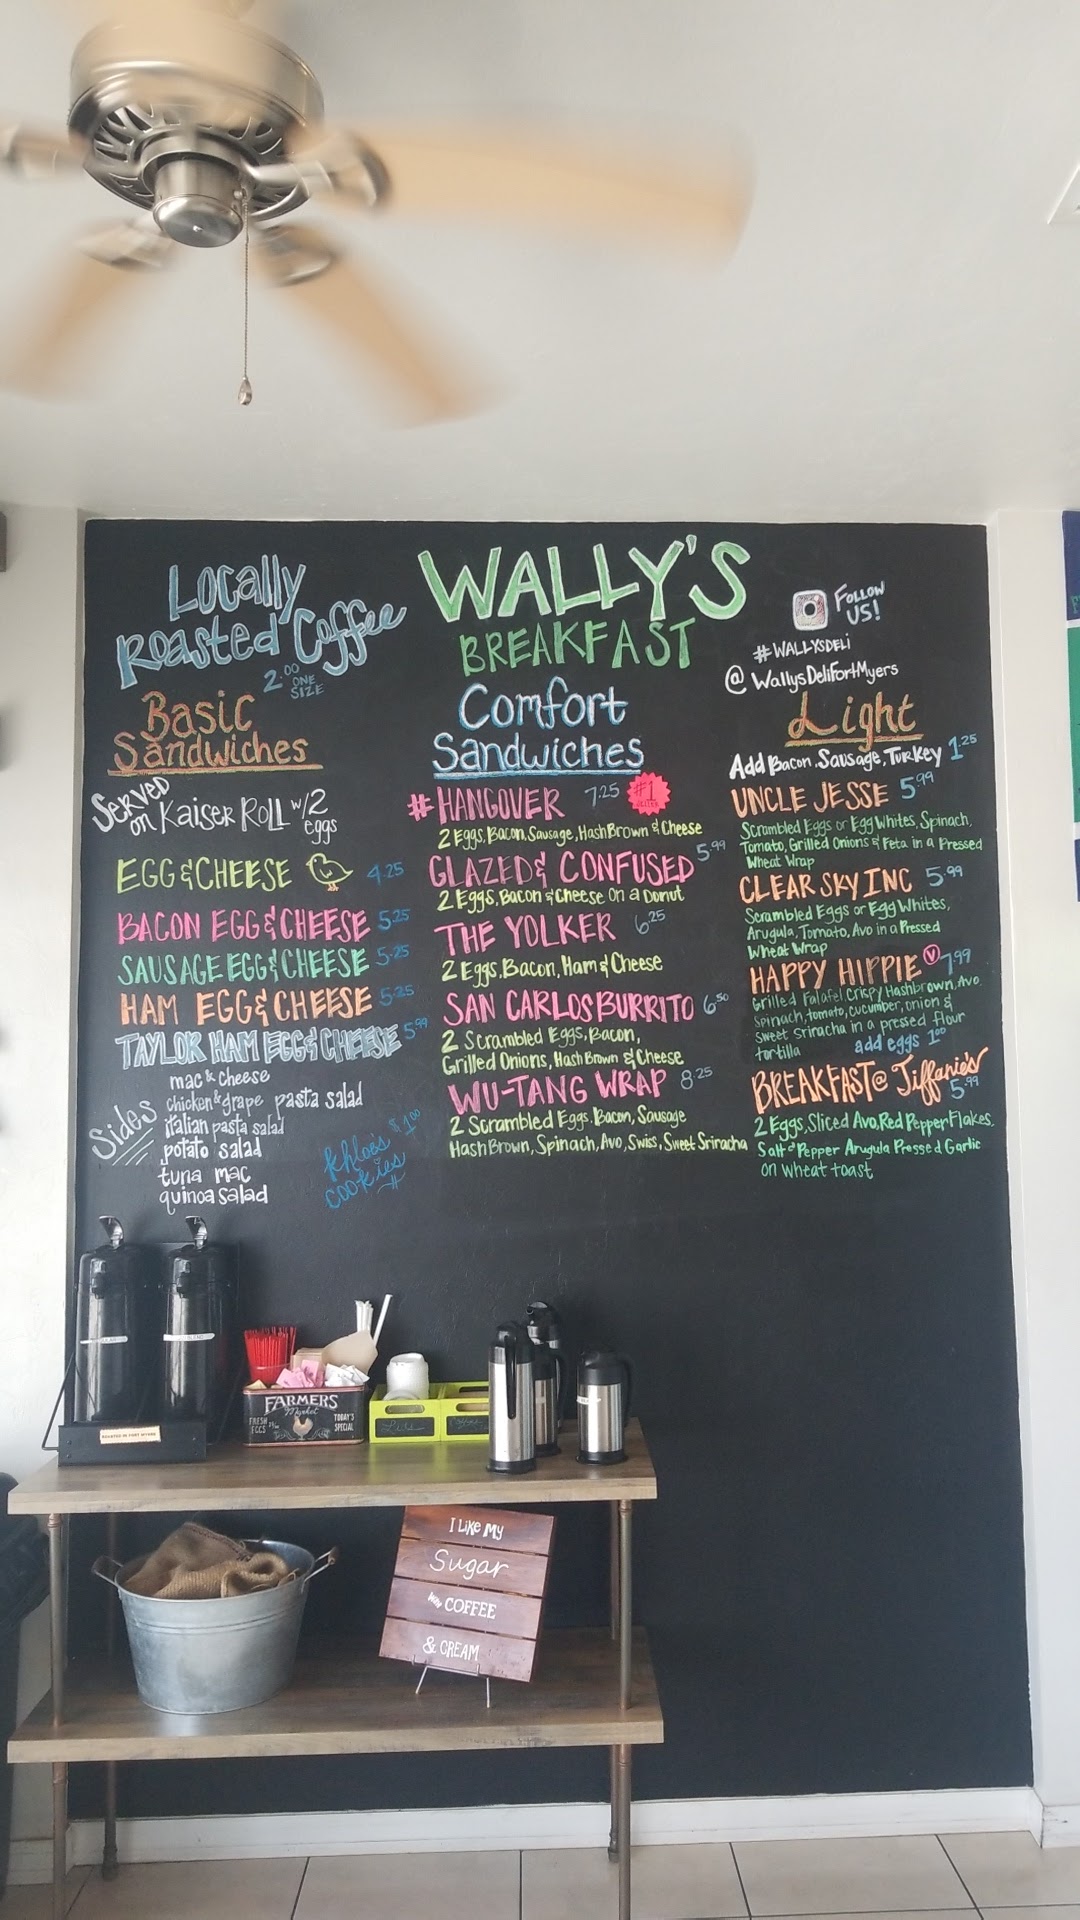 LOCally
Roasted Coffee
2.00 ONE SIZE
WALLY'S
BREAKFAST
FOLLOW US!
#WALLYSDELI
@WallysDeliFortMyers
Basic
Sandwiches
SERVED on Kaiser ROLL w/2 eggs
EGG & CHEESE 4.25
BACON EGG & CHEESE 5.25
SAUSAGE EGG & CHEESE 5.25
HAM EGG & CHEESE 5.25
TAYLOR HAM EGG & CHEESE 5.99
Sides
mac & cheese
chicken & grape pasta salad
italian pasta salad
potato salad
tuna mac
quinoa salad
khloe's $1.00
cookies
Comfort
Sandwiches
#HANGOVER 7.25 #1
2 Eggs, Bacon, Sausage, Hash Brown & Cheese
GLAZED & CONFUSED 5.99
2 Eggs, Bacon & Cheese On a Donut
THE YOLKER 6.25
2 Eggs, Bacon, Ham & Cheese
SAN CARLOS BURRITO 6.50
2 Scrambled Eggs, Bacon,
Grilled Onions, Hash Brown & Cheese
WU-TANG WRAP 8.25
2 Scrambled Eggs, Bacon, Sausage
Hash Brown, Spinach, Avo, Swiss, Sweet Sriracha
Light
Add Bacon, Sausage, Turkey 1.25
UNCLE JESSE 5.99
Scrambled Eggs or Egg Whites, Spinach,
Tomato, Grilled Onions & Feta in a Pressed
Wheat Wrap
CLEAR SKY INC 5.99
Scrambled Eggs or Egg Whites,
Arugula, Tomato, Avo in a Pressed
Wheat Wrap
HAPPY HIPPIE V 7.99
Grilled Falafel Crispy Hashbrown, Avo
Spinach, tomato, cucumber, onion &
Sweet Sriracha in a pressed flour
tortilla add eggs 1.00
BREAKFAST @ Tiffanie's 5.99
2 Eggs, Sliced Avo, Red Pepper Flakes,
Salt & Pepper Arugula Pressed Garlic
on Wheat toast
FARMERS
Market
FRESH EGGS
TODAY'S SPECIAL
ROASTED IN FORT MYERS
Lids
Coffee
I LIKE MY
Sugar
WITH COFFEE
& CREAM